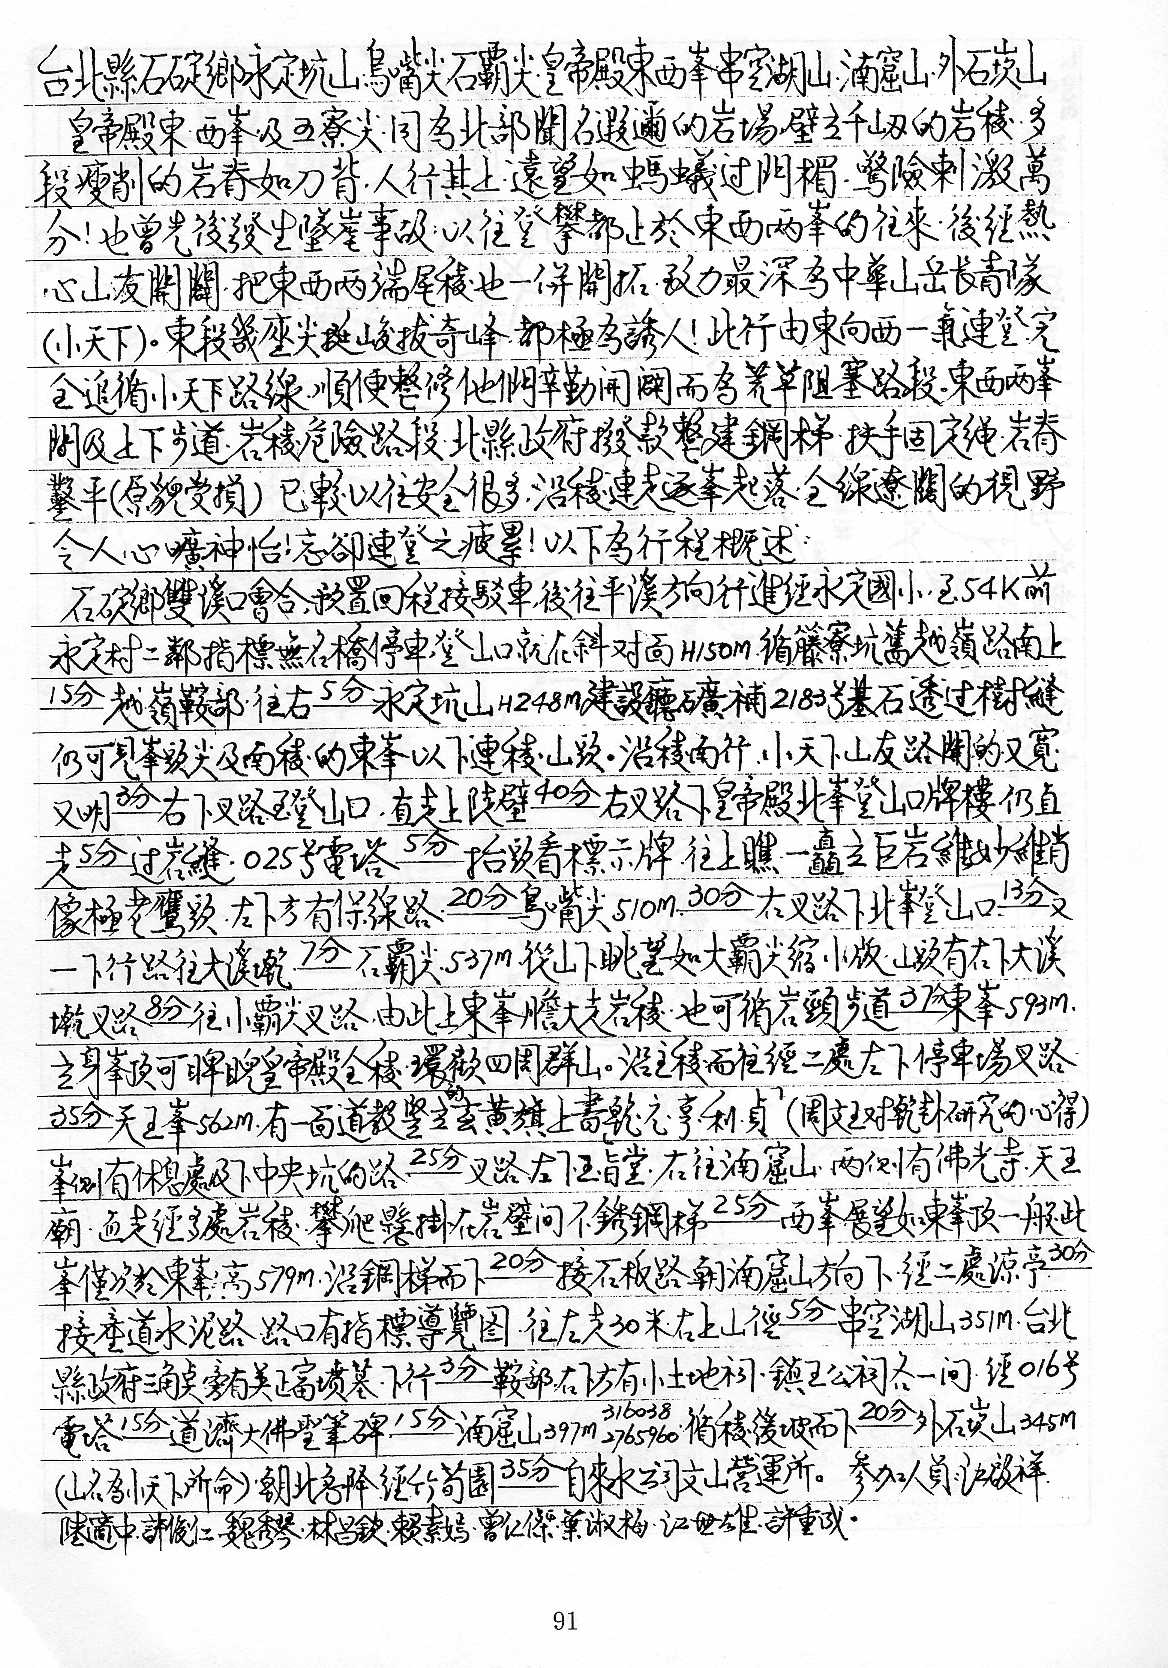 台北縣石碇鄉永定坑山.烏嘴尖石霸尖.皇帝殿東西峯串空湖山.湳窟山.外石崁山
皇帝殿東.西峯及五寮尖.同為北部聞名遐邇的岩場.壁立千山刃的岩稜.多
段瘦削的岩脊如刀背.人行其上.遠望如螞蟻过門楣.驚險刺激萬
分!也曾先後發生墜崖事故:以往登攀都止於東西兩峯的往來.後經熱
心山友開闢.把東西兩端尾稜也一併開拓.致力最深為中華山岳長青隊
(小天下)。東段幾座尖挺峻拔奇峰.都極為誘人!此行由東向西一氣連登.完
全追循小天下路線.順便整修他們辛勤開闢而為荒草阻塞路段.東西兩峯
間及上下步道.岩稜危險路段.北縣政府撥款整建鋼梯.扶手固定繩.岩脊
鑿平(原貌受損)已較以往安全很多.沿稜連走逐峯起落.全線遼闊的視野
令人心曠神怡!忘卻連登之疲累!以下為行程概述:
石碇鄉雙溪口會合.預置回程接駁車.後往平溪方向行進經永定國小.至54K前
永定村二鄰指標無名橋停車.登山口就在斜对面H150M.循藤寮坑舊越嶺路南上
15分越嶺鞍部.往右5分永定坑山H248M建設廳石廣補2183号基石透过樹縫
仍可見峯頭尖及南稜的東峯以下連稜.山頭。沿稜南行.小天下山友路開的又寬
又明3分右下叉路至登山口.直走上陡壁40分右叉路下皇帝殿北峯登山口牌樓.仍直
走5分过岩縫.025号電塔5分抬頭看標示牌.往上瞧.一矗立巨岩維妙維肖
像極老鷹頭.左下方有保線路.20分烏嘴尖510M.30分右叉路下北峯登山口.13分又
一下行路往大溪墘.7分石霸尖.537M.從山下眺望如大霸尖縮小版.山頭有右下大溪
墘叉路8分往小霸尖叉路.由此上東峯.膽大走岩稜.也可循岩頸步道37分東峯593M.
立身峯頂可睥睨皇帝殿全稜.環顧四周群山。沿主稜而往經二處左下停車場叉路
35分天王峯562M.有一面道教豎立的玄黃旗上書「乾.元.亨.利.貞」(周文王对乾卦研究的心得)
峯側有休息處及下中央坑的路.25分叉路左下玉旨堂.右往湳窟山.兩側有佛光寺.天王
廟.直走經多處岩稜.攀爬懸掛在岩壁間不銹鋼梯25分西峯展望如東峯頂一般此
峯僅次於東峯.高579M.沿鋼梯而下20分接石板路.朝湳窟山方向下.經二處涼亭30分
接產道水泥路.路口有指標導覽图.往左走30米右上山徑5分串空湖山351M.台北
縣政府三角点旁有吴正富墳墓.下行3分鞍部.右下方有小土地祠.鎮王公祠各一间.經016号
電塔15分道濟大佛聖筆碑.15分湳窟山397M 316038 2765960.循稜緩坡而下20分外石崁山345M
(山名為小天下所命).朝北急降.經竹荀園35分自來水公司文山營運所。參加人員:阮啟祥.
陸適中.許俊仁.魏秀琴.林昌欽.賴素嫣.曾仁傑.葉淑梅.江世雄.許重成.
91